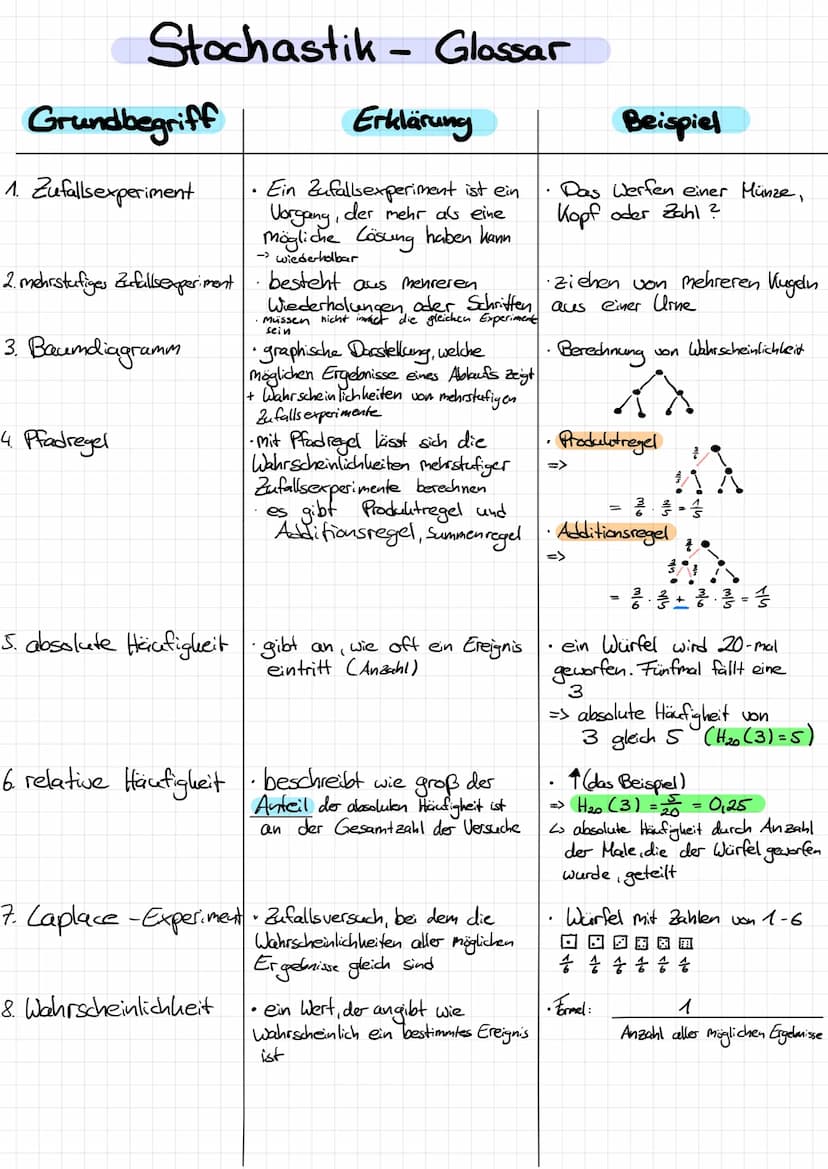 Stochastik - Glossar
Grundbegriff
Erklärung
Beispiel
1. Zufallsexperiment
· Ein Zufallsexperiment ist ein
Vorgang, der mehr als eine
mögliche Lösung haben kann
-> wiederholbar
· Das Werfen einer Münze,
Kopf oder Zahl?
2. mehrstufiges Zufallsexperiment
· besteht aus mehreren
Wiederholungen oder Schritten
· müssen nicht immer die gleichen Experimente
sein
· ziehen von mehreren Kugeln
aus einer Urne
3. Baumdiagramm
· graphische Darstellung, welche
möglichen Ergebnisse eines Ablaufs zeigt
+ Wahrscheinlichkeiten von mehrstufigen
Zufallsexperimente
· Berechnung von Wahrscheinlichkeit
4. Pfadregel
· mit Pfadregel lässt sich die
Wahrscheinlichkeiten mehrstufiger
Zufallsexperimente berechnen
· es gibt Produktregel und
Additionsregel, Summenregel
· Produktregel
=>
= 3/6 · 2/5 = 1/5
· Additionsregel
=>
= 3/6 · 2/5 + 3/6 · 3/5 = 1/5
5. absolute Häufigkeit
· gibt an, wie oft ein Ereignis
eintritt (Anzahl)
· ein Würfel wird 20-mal
geworfen. Fünfmal fällt eine
3
=> absolute Häufigheit von
3 gleich 5 (H₂₀(3)=5)
6. relative Häufigkeit
· beschreibt wie groß der
Anteil der absoluten Häufigkeit ist
an der Gesamtzahl der Versuche
· ↑ (das Beispiel)
=> H₂₀(3) = 5/20 = 0,25
↳ absolute Häufigkeit durch Anzahl
der Male, die der Würfel geworfen
wurde, geteilt
7. Laplace - Experiment
· Zufallsversuch, bei dem die
Wahrscheinlichkeiten aller möglichen
Ergebnisse gleich sind
· Würfel mit Zahlen von 1-6
1/6 1/6 1/6 1/6 1/6 1/6
8. Wahrscheinlichkeit
· ein Wert, der angibt wie
wahrscheinlich ein bestimmtes Ereignis
ist
· Formel:
1
Anzahl aller möglichen Ergebnisse